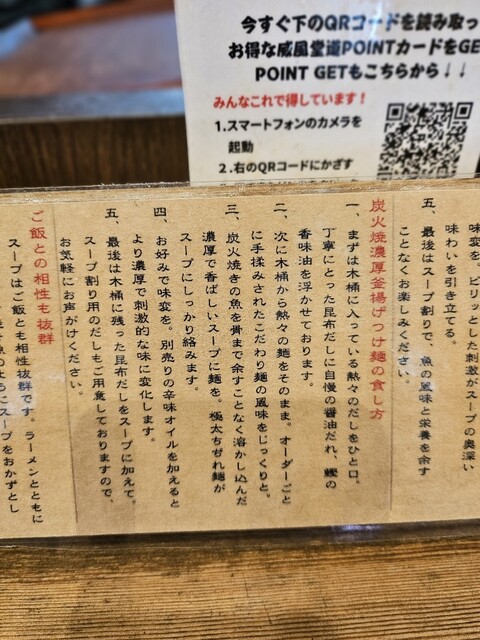 今すぐ下のQRコードを読み取っ
お得な威風堂道POINTカードをGE
POINT GETもこちらから↓↓
みんなこれで得しています！
1.スマートフォンのカメラを
起動
2.右のQRコードにかざす
味変を。ピリッとした刺激がスープの奥深い
味わいを引き立てる。
五、最後はスープ割りで、魚の風味と栄養を余す
ことなくお楽しみください。
炭火焼濃厚釜揚げつけ麺の食し方
一、まずは木桶に入っている熱々のだしをひと口。
丁寧にとった昆布だしに自慢の醤油だれ、鰹の
香味油を浮かせております。
二、次に木桶から熱々の麺をそのまま。オーダーごと
に手揉みされたこだわり麺の風味をじっくりと。
三、炭火焼きの魚を骨まで余すことなく溶かし込んだ
濃厚で香ばしいスープに麺を。極太ちぢれ麺が
スープにしっかり絡みます。
四、お好みで味変を。別売りの辛味オイルを加えると
より濃厚で刺激的な味に変化します。
五、最後は木桶に残った昆布だしをスープに加えて。
スープ割り用のだしもご用意しておりますので、
お気軽にお声がけください。
ご飯との相性も抜群
スープはご飯とも相性抜群です。ラーメンとともに
魚のようにスープをおかずとし